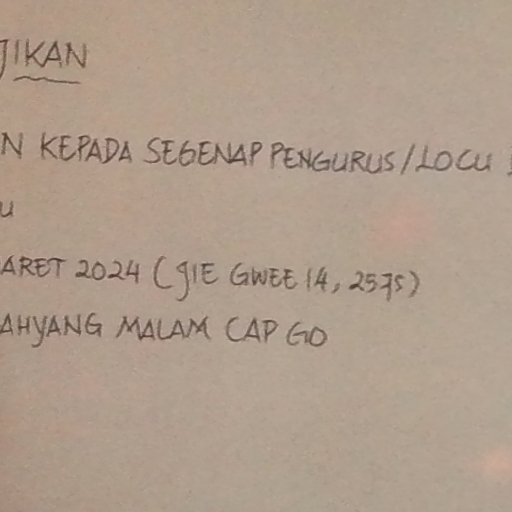 JIKAN
N KEPADA SEGENAP PENGURUS/LOCU
U
ARET 2024 (JIE GWEE 14, 2575)
AHYANG MALAM CAP GO